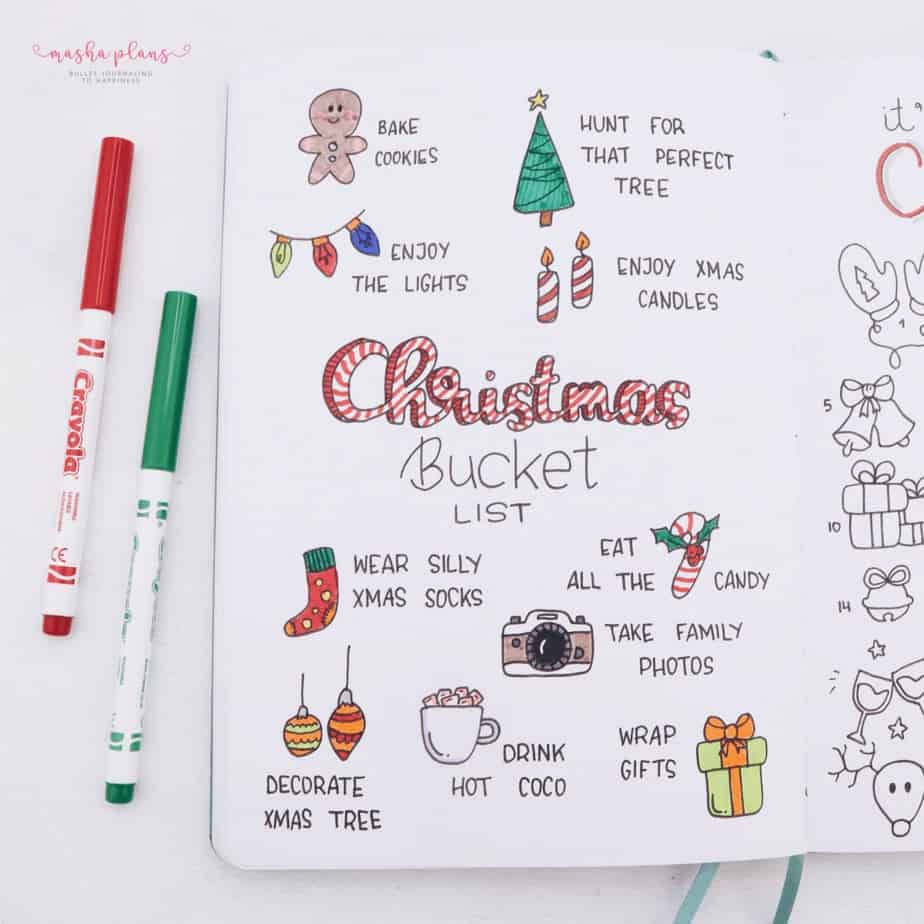 masha plans
BULLET JOURNALING
TO HAPPINESS
BAKE
COOKIES
HUNT FOR
THAT PERFECT
TREE
ENJOY
THE LIGHTS
ENJOY XMAS
CANDLES
Christmas
Bucket
LIST
WEAR SILLY
XMAS SOCKS
EAT
ALL THE CANDY
TAKE FAMILY
PHOTOS
DECORATE
XMAS TREE
DRINK
HOT COCO
WRAP
GIFTS
it's
C
1
5
10
14
Crayola
CE